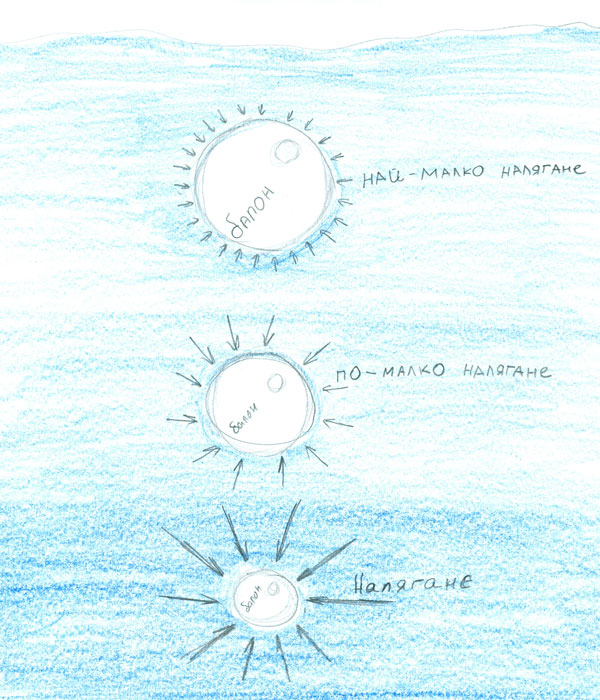 балон
най-малко налягане
балон
по-малко налягане
балон
Налягане